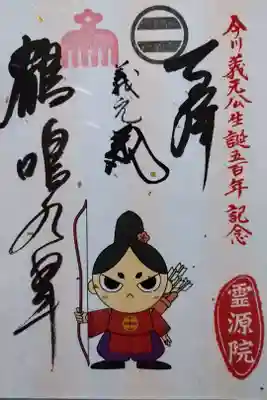 今川義元公生誕五百年記念
義元
鶴鳴九皐
霊源院